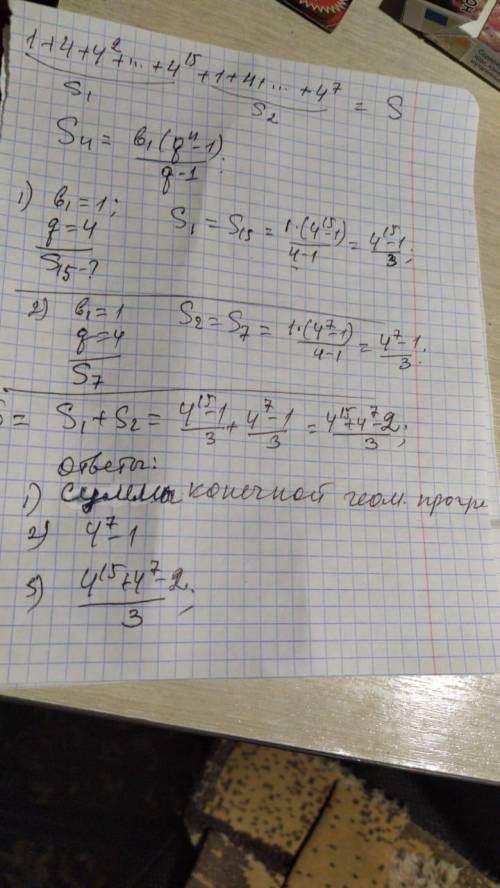 1+4+4²+...+4¹⁵+1+4+...+4⁷ = S
S₁ S₂
Sₙ = в₁(qⁿ-1)/(q-1);
1) в₁=1; S₁ = S₁₅ = 1·(4¹⁵-1)/(4-1) = (4¹⁵-1)/3;
q=4
S₁₅-?
2) в₁=1 S₂=S₇ = 1·(4⁷-1)/(4-1) = (4⁷-1)/3;
q=4
S₇
S = S₁+S₂ = (4¹⁵-1)/3 + (4⁷-1)/3 = (4¹⁵+4⁷-2)/3;
ответы:
1) суммы конечной геом. прогре
2) 4⁷-1
3) (4¹⁵+4⁷-2)/3;